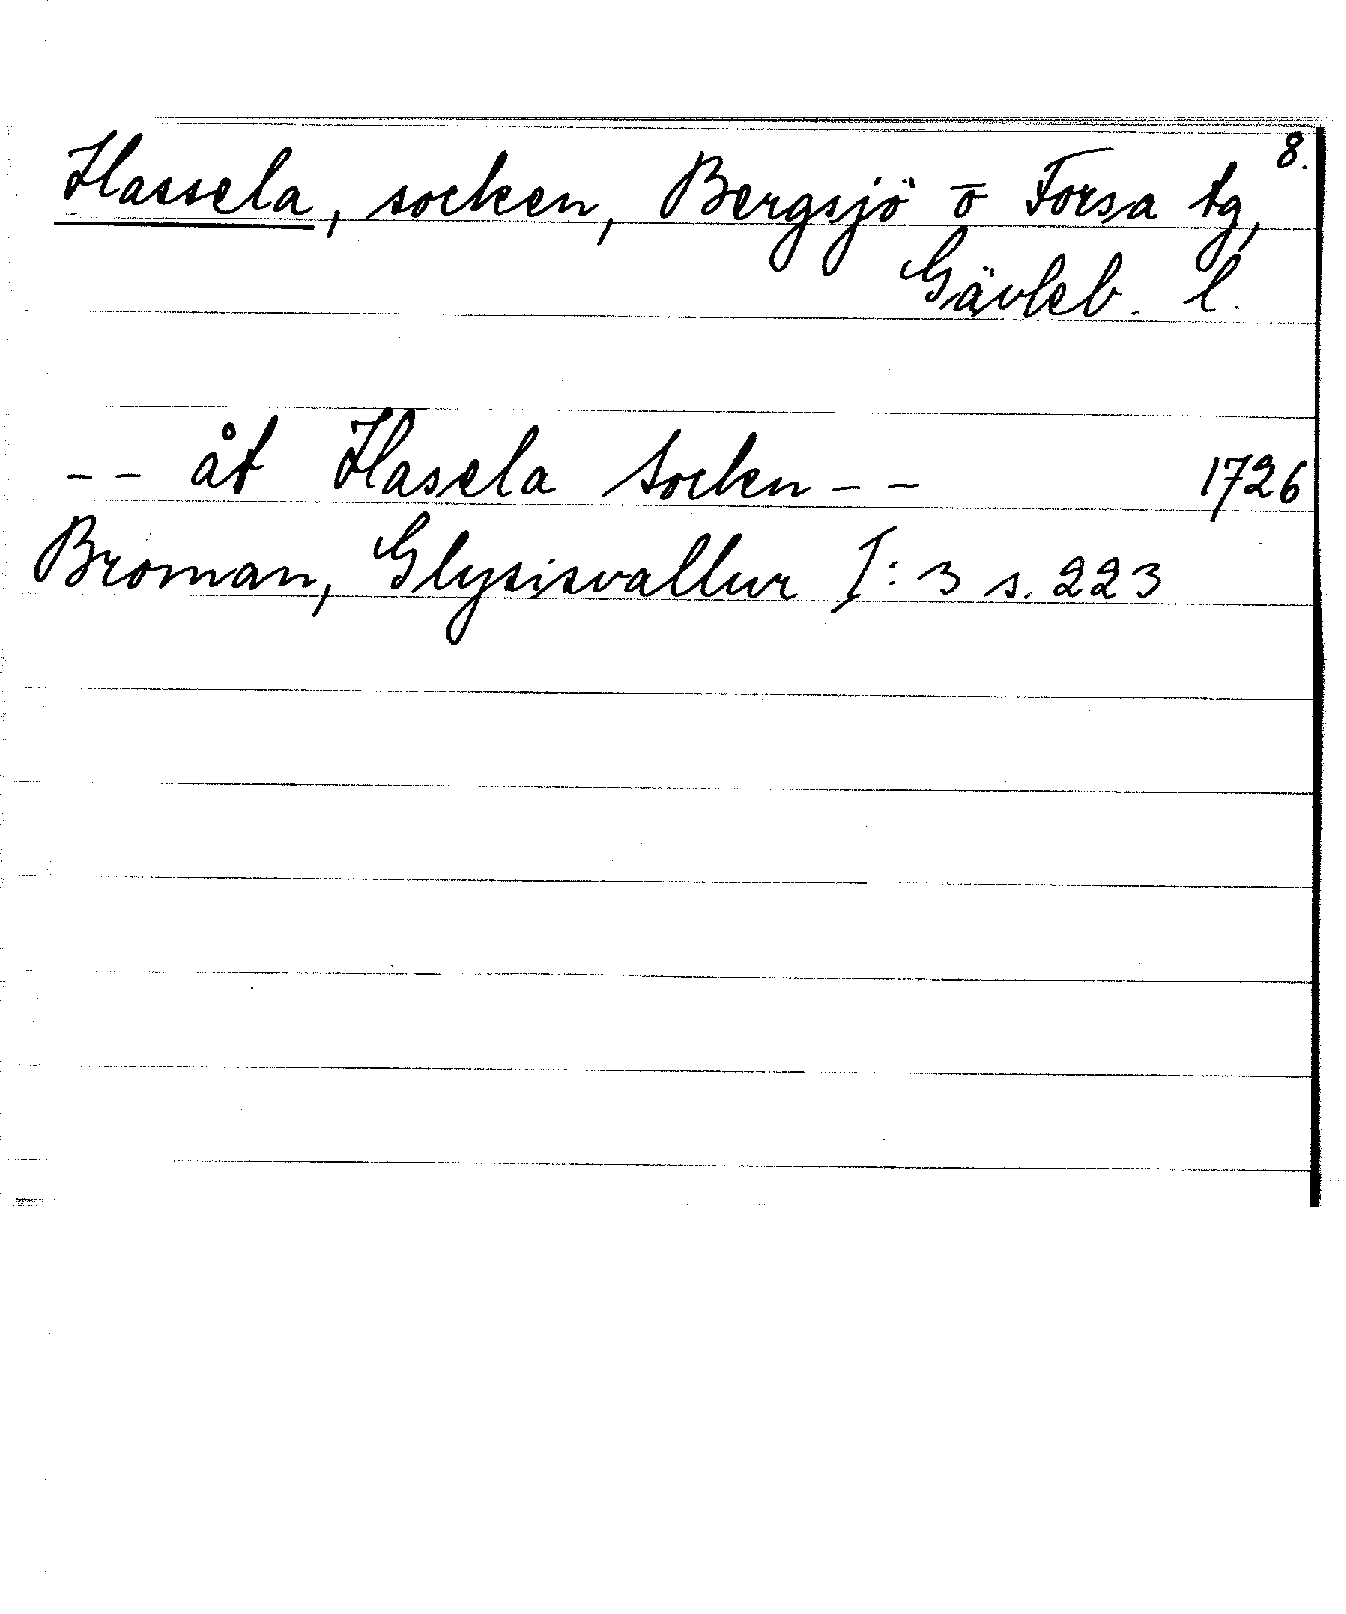 8.
Hassela, socken, Bergsjö o Forsa tg,
Gävleb. l.
-- åt Hasela Socken -- 1726
Broman, Glysisvallur I:3 s. 223